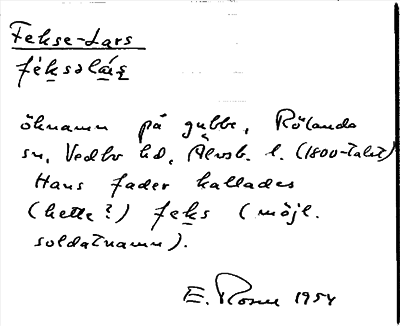 Fekse-Lars
féksəlás
öknamn på gubbe, Rölanda
sn, Vedbo hd, Älvsb. l. (1800-talet)
Hans fader kallades
(hette?) feks (möjl.
soldatnamn).
E. Rosén 1954